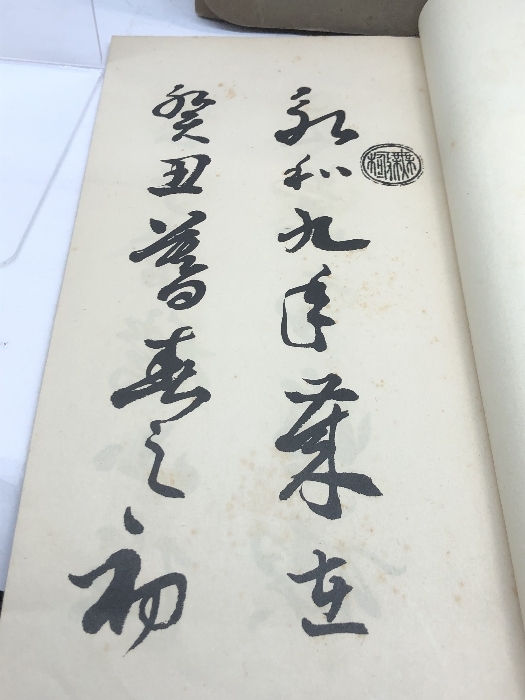 永和九年歳在
癸丑暮春之初